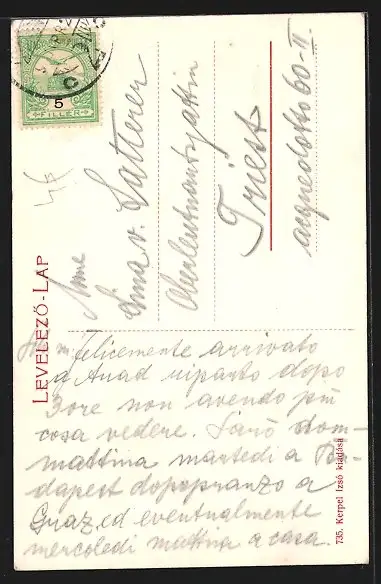 5
FILLER
LEVELEZŐ-LAP
Lina v. Latterer
Oberleutnantsgattin
Triest
acquedotto 60-II
Felicemente arrivato
a Arad riparto dopo
3 ore non avendo più
cosa vedere. Sarò dom-
mattina martedi a Bu-
dapest dopopranzo a
Graz, ed eventualmente
mercoledi mattina a casa.
735. Kerpel Izsó kiadása